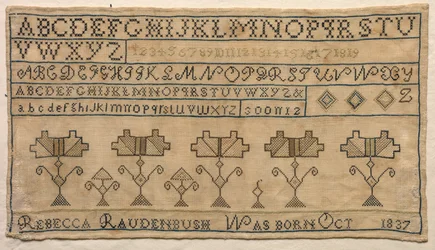 ABCDEFGHIJKLMNOPQRSTU
VWXYZ 12345678910111213141516171819
ABCDEFGHIJKLMNOPQRSTUVWXYZ
ABCDEFGHIJKLMNOPQRSTUVWXYZ& Z
abcdefghijklmnopqrstuvwxyz
REBECCA RAUDENBUSH WAS BORN OCT 1837